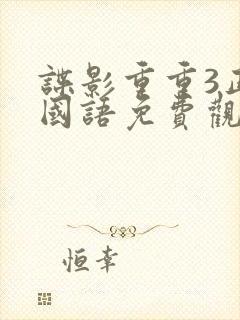 諜影重重3正
國語免費觀
恒幸